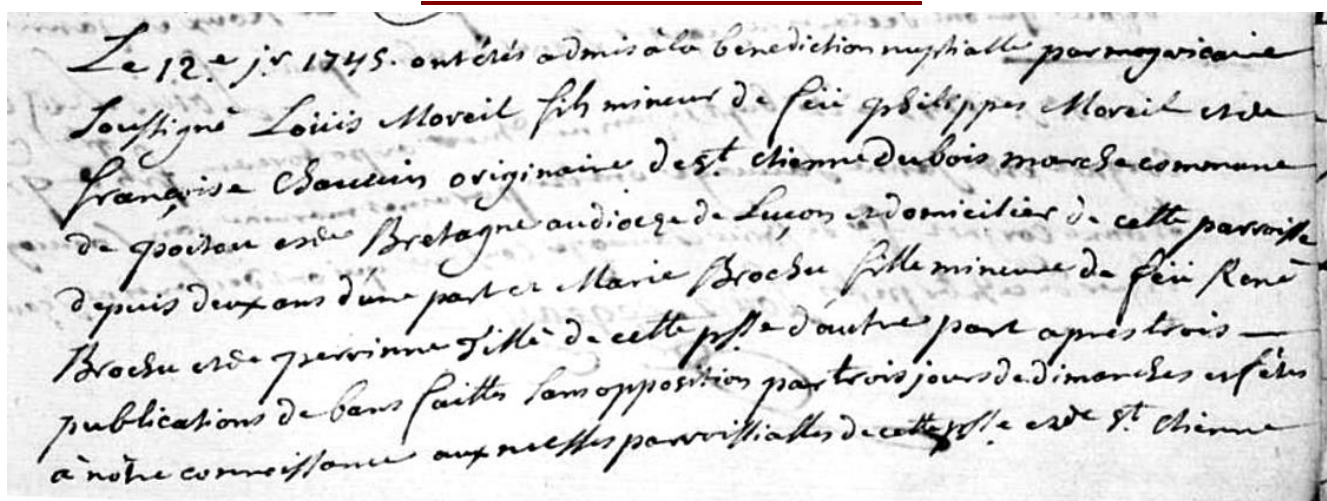 Le 12.e jr 1745. ont étés admis à la benediction nuptialle par moy vicaire
soussigné Loüis Moreil fils mineur de feü philippes Moreil et de
françoise Chauvin originaire de St. etienne du bois marche commune
de poitou et de Bretagne au diocèze de Luçon et domicilier de cette parroisse
depuis deux ans d'une part et Marie Brochu fille mineure de feü René
Brochu et de perrinne de cette psse d'autre part apres trois —
publications de bans faittes sans opposition par trois jours de dimanches et fêtes
à nôtre connoissance aux messes parroissialles de cette psse et de St. etienne